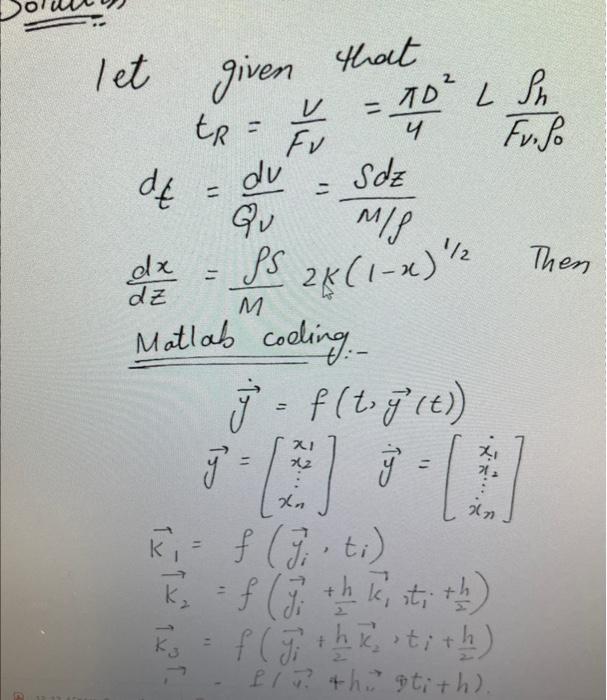 Solution
let given that
tR = V/Fv = πD²/4 L ρh/Fv.ρo
dt = dv/Qv = Sdz/M/ρ
dx/dz = ρS/M 2K(1-x)^1/2 Then
Matlab coding:-
ẏ⃗ = f(t, y⃗(t))
y⃗ = [x1 x2 ⋮ xn] ẏ⃗ = [ẋ1 ẋ2 ⋮ ẋn]
k⃗1 = f(y⃗i, ti)
k⃗2 = f(y⃗i + h/2 k⃗1, ti + h/2)
k⃗3 = f(y⃗i + h/2 k⃗2, ti + h/2)